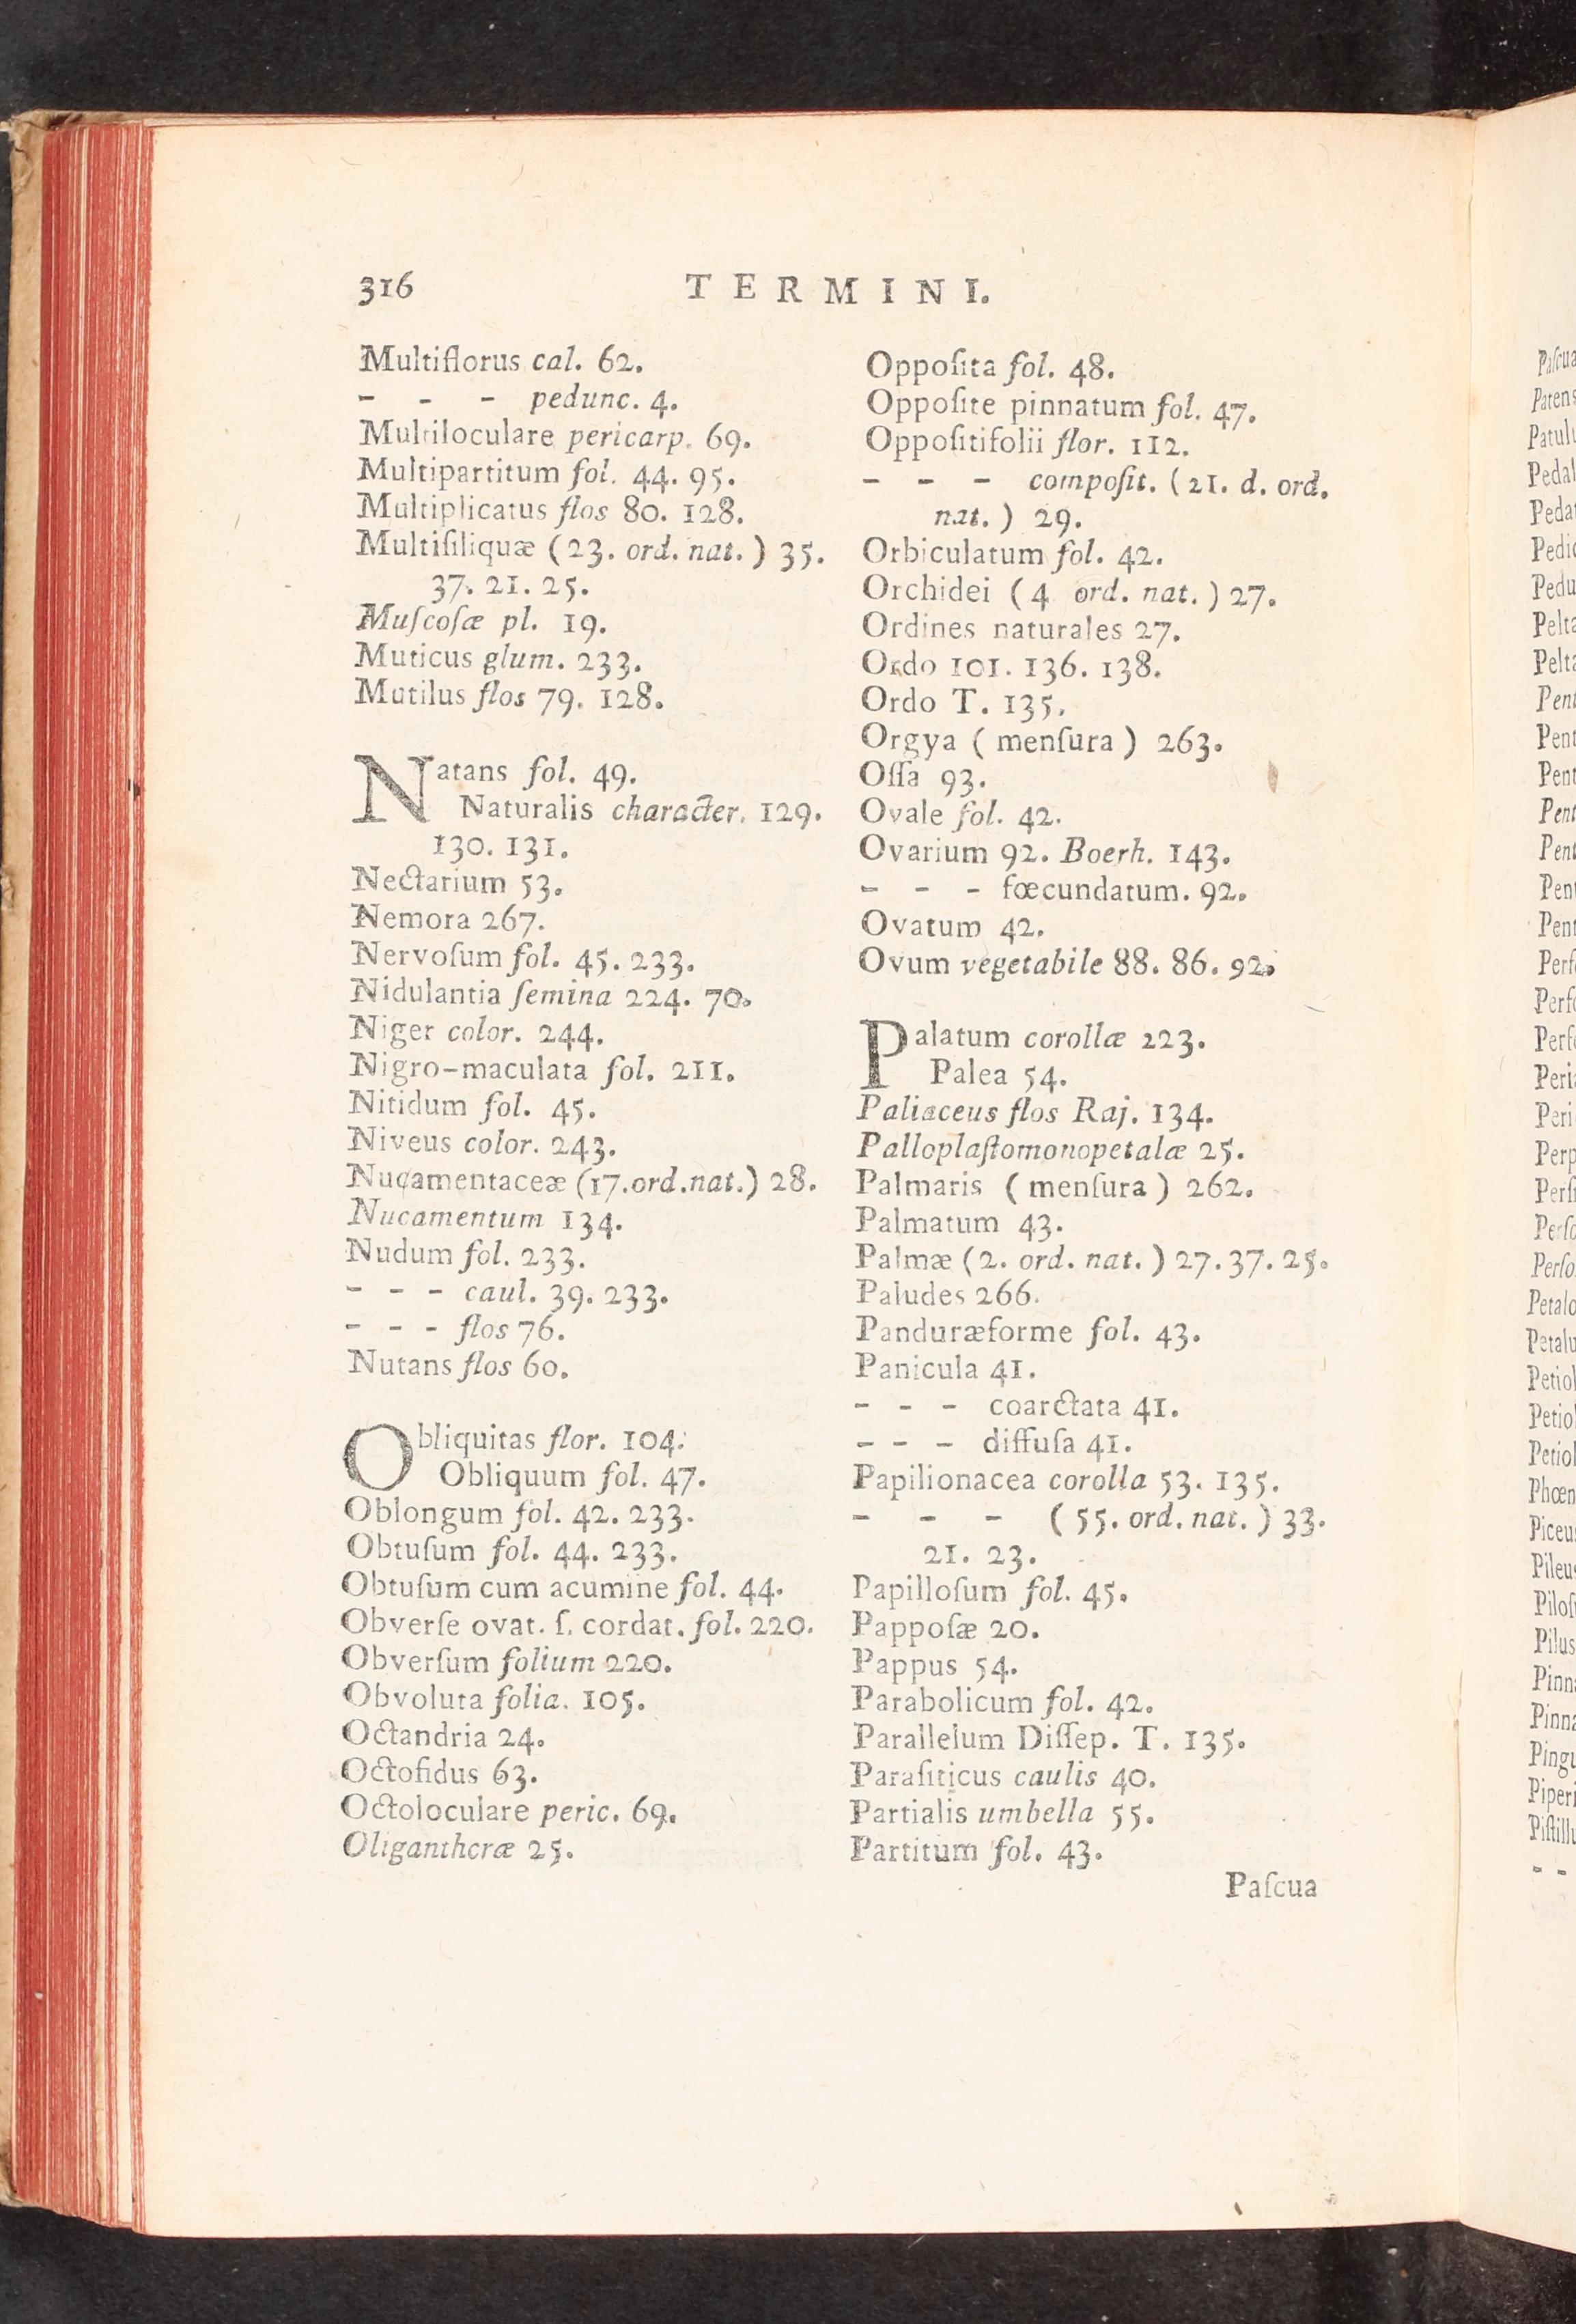 316 TERMINI.
Multiflorus cal. 62.
- - - pedunc. 4.
Multiloculare pericarp. 69.
Multipartitum fol. 44. 95.
Multiplicatus flos 80. 128.
Multiſiliquæ (23. ord. nat.) 35.
37. 21. 25.
Muſcoſæ pl. 19.
Muticus glum. 233.
Mutilus flos 79. 128.
Natans fol. 49.
Naturalis character. 129.
130. 131.
Nectarium 53.
Nemora 267.
Nervoſum fol. 45. 233.
Nidulantia ſemina 224. 70.
Niger color. 244.
Nigro-maculata fol. 211.
Nitidum fol. 45.
Niveus color. 243.
Nucamentaceæ (17. ord. nat.) 28.
Nucamentum 134.
Nudum fol. 233.
- - - caul. 39. 233.
- - - flos 76.
Nutans flos 60.
Obliquitas flor. 104.
Obliquum fol. 47.
Oblongum fol. 42. 233.
Obtuſum fol. 44. 233.
Obtuſum cum acumine fol. 44.
Obverſe ovat. ſ. cordat. fol. 220.
Obverſum folium 220.
Obvoluta folia. 105.
Octandria 24.
Octofidus 63.
Octoloculare peric. 69.
Oligantheræ 25.
Oppoſita fol. 48.
Oppoſite pinnatum fol. 47.
Oppoſitifolii flor. 112.
- - - compoſit. (21. d. ord.
nat.) 29.
Orbiculatum fol. 42.
Orchidei (4 ord. nat.) 27.
Ordines naturales 27.
Ordo 101. 136. 138.
Ordo T. 135.
Orgya (menſura) 263.
Oſſa 93.
Ovale fol. 42.
Ovarium 92. Boerh. 143.
- - - fœcundatum. 92.
Ovatum 42.
Ovum vegetabile 88. 86. 92.
Palatum corollæ 223.
Palea 54.
Paliaceus flos Raj. 134.
Palloplaſtomonopetalæ 25.
Palmaris (menſura) 262.
Palmatum 43.
Palmæ (2. ord. nat.) 27. 37. 25.
Paludes 266.
Panduræforme fol. 43.
Panicula 41.
- - - coarctata 41.
- - - diffuſa 41.
Papilionacea corolla 53. 135.
- - - (55. ord. nat.) 33.
21. 23.
Papilloſum fol. 45.
Pappoſæ 20.
Pappus 54.
Parabolicum fol. 42.
Parallelum Diſſep. T. 135.
Paraſiticus caulis 40.
Partialis umbella 55.
Partitum fol. 43.
Paſcua